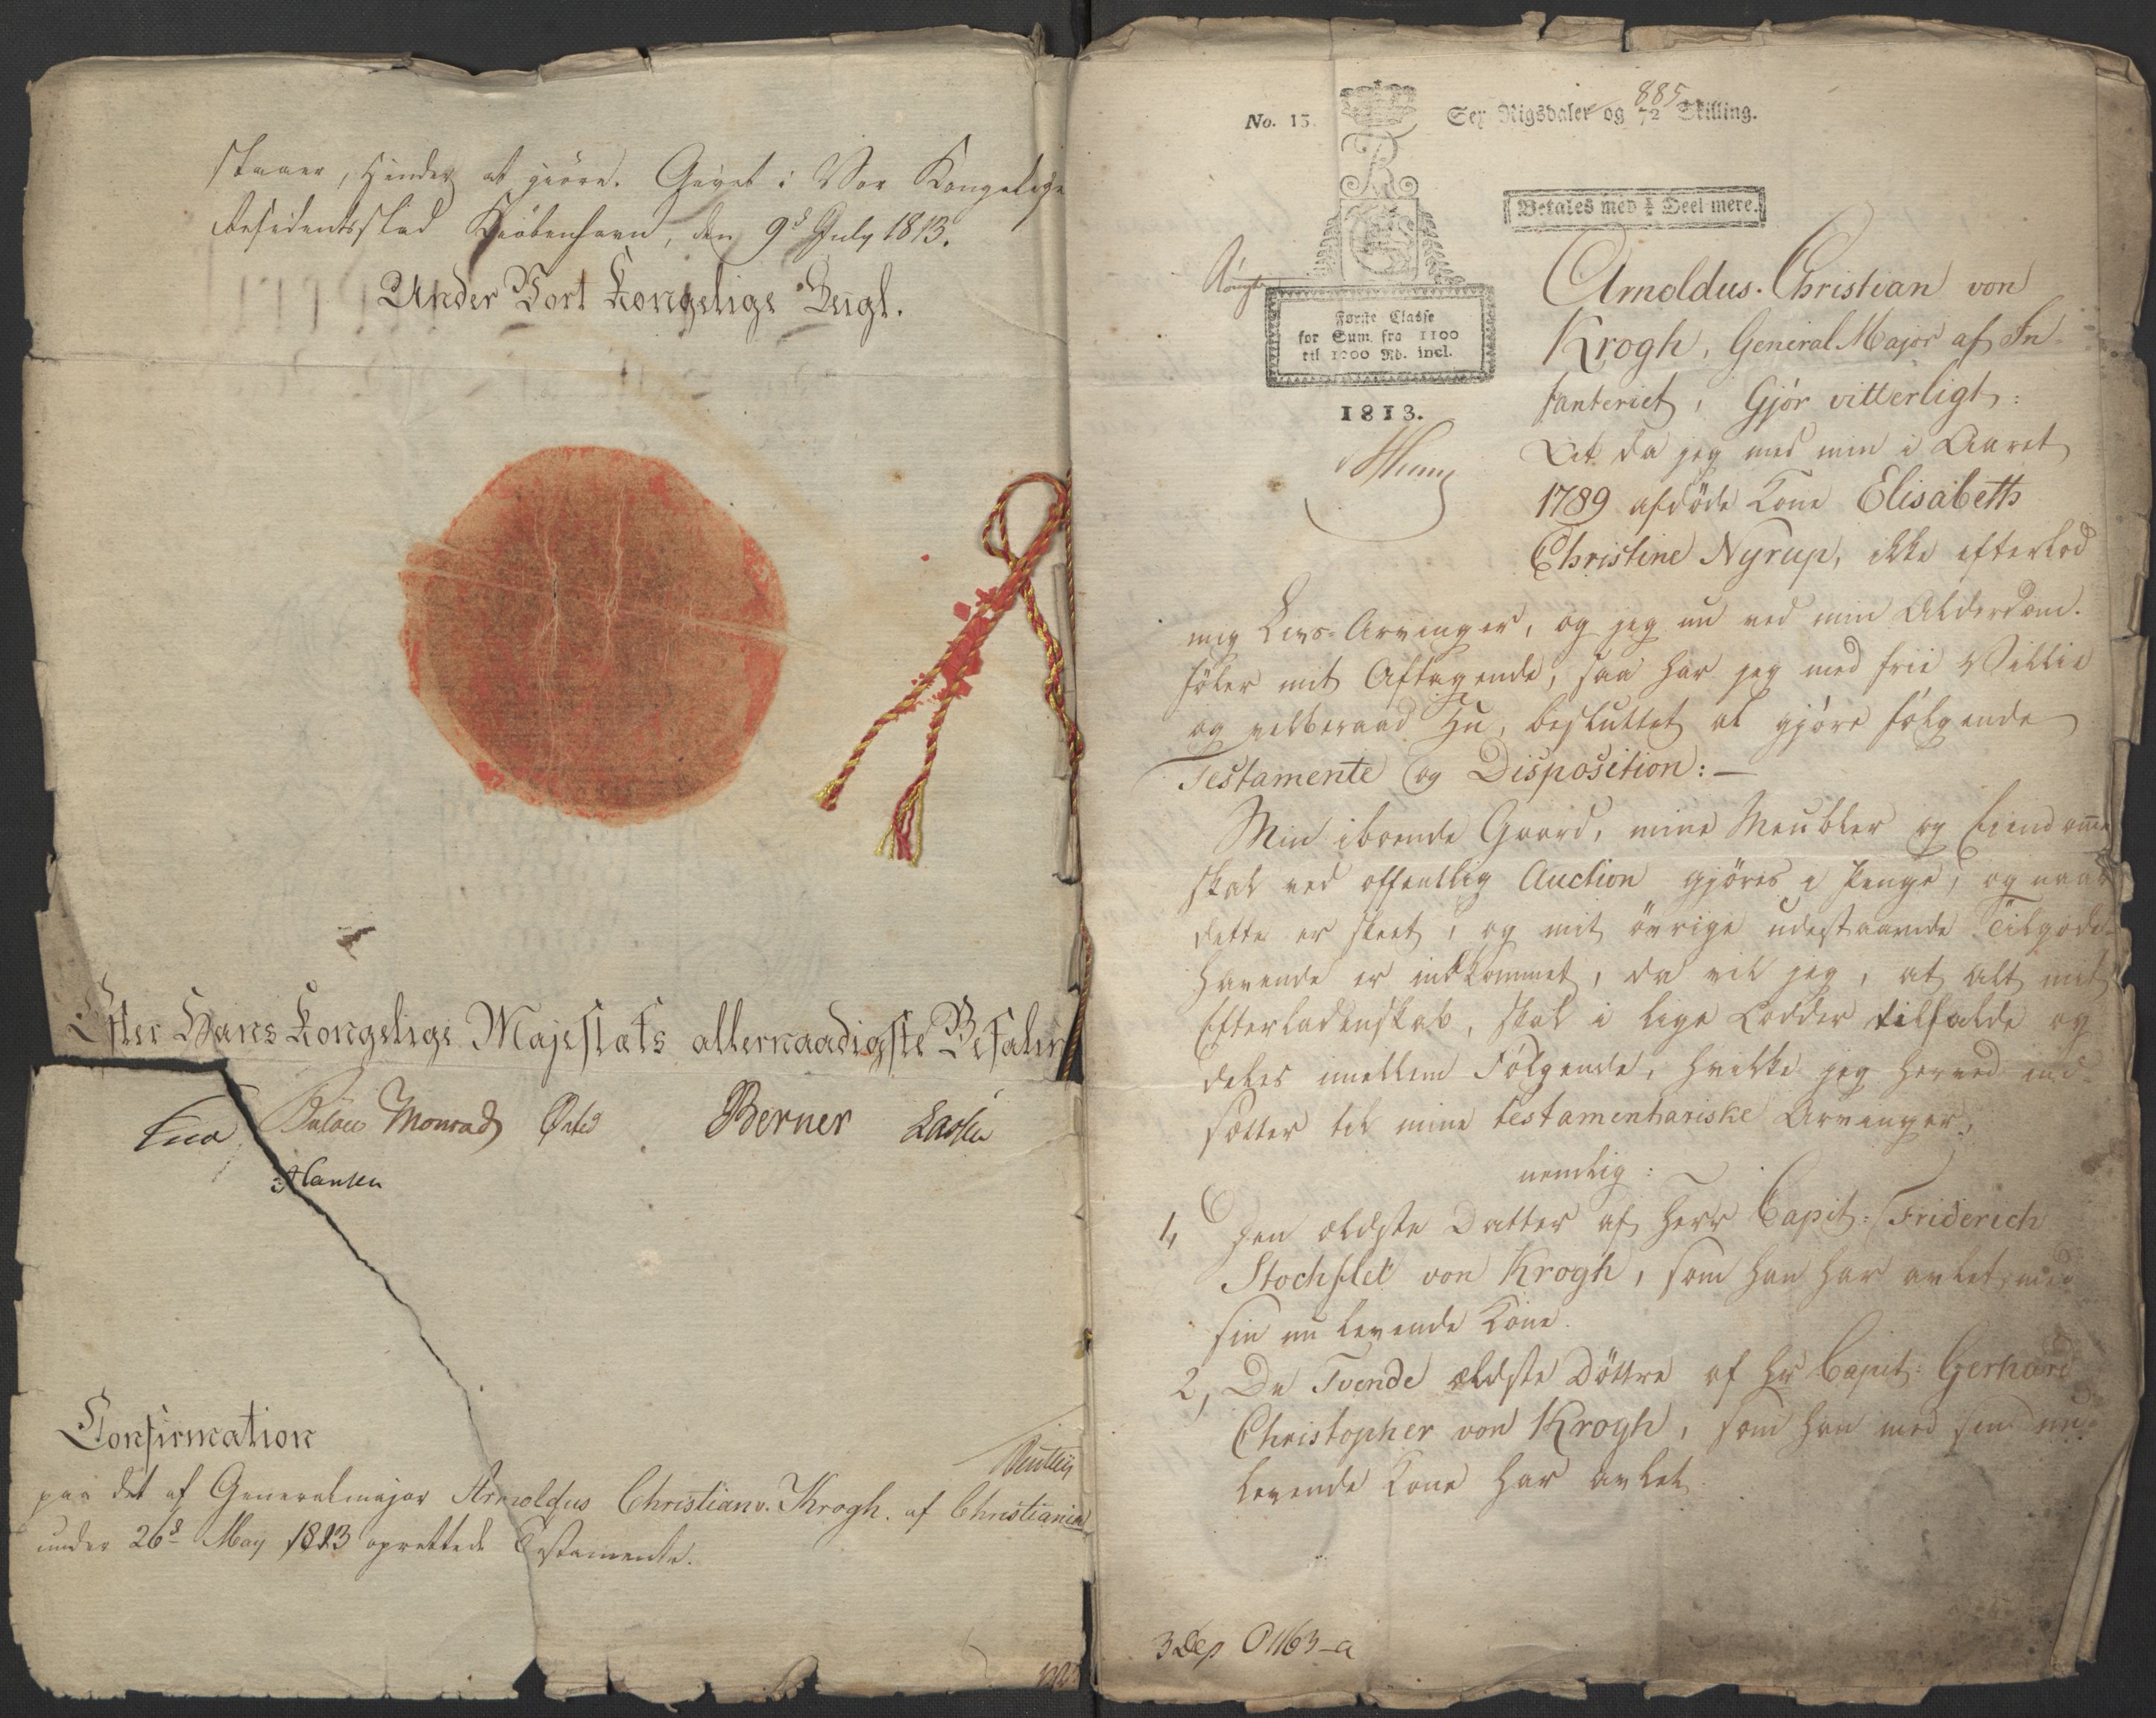 staaer, hinder at giöre. Givet i Vor Kongelige
Residentsstad Kiöbenhavn, den 9d July 1813.
Under Vort Kongelige Seigl.
Efter Hans Kongelige Majestæts allernaadigste Befaling
Bülow Monrad Ørsted Berner Lassen
Hansen
Confirmation
paa det af Generalmajor Arnoldus Christian v. Krogh af Christiania
under 26d May 1813 oprettede Testamente.
No. 15.
885
Sex Rigsdaler og 72 Skilling.
Betales med ¼ Deel mere.
Første Classe
for Sum fra 1100
til 1200 Rd. incl.
1813.
Arnoldus Christian von
Krogh, General Major af In-
fanteriet, Gjör vitterligt:
At da jeg med min i Aaret
1789 afdöde Kone Elisabeth
Christine Nyrup, ikke efterlod
mig Livs-Arvinger, og jeg nu ved min Alderdom
föler mit Aftagende, saa har jeg med frie Villie
og velberaad Hu, besluttet at gjöre fölgende
Testamente og Disposition: —
Min iboende Gaard, mine Meubler og Eiendomme
skal ved offentlig Auction gjöres i Penge, og naar
dette er skeet, og mit övrige udestaaende Tilgode-
havende er indkommet, da vil jeg, at alt mit
Efterladenskab, skal i lige Lodder tilfalde og
deles imellem Fölgende, hvilke jeg herved ind-
sætter til mine testamentariske Arvinger,
nemlig:
1, Den ældste Datter af Herr Capit: Friderich
Stochflet von Krogh, som han har avlet med
sin nu levende Kone.
2, De Tvende ældste Döttre af Hr Capit: Gerhard
Christopher von Krogh, som han med sin nu
levende Kone har avlet
3 Dep O 1163-a